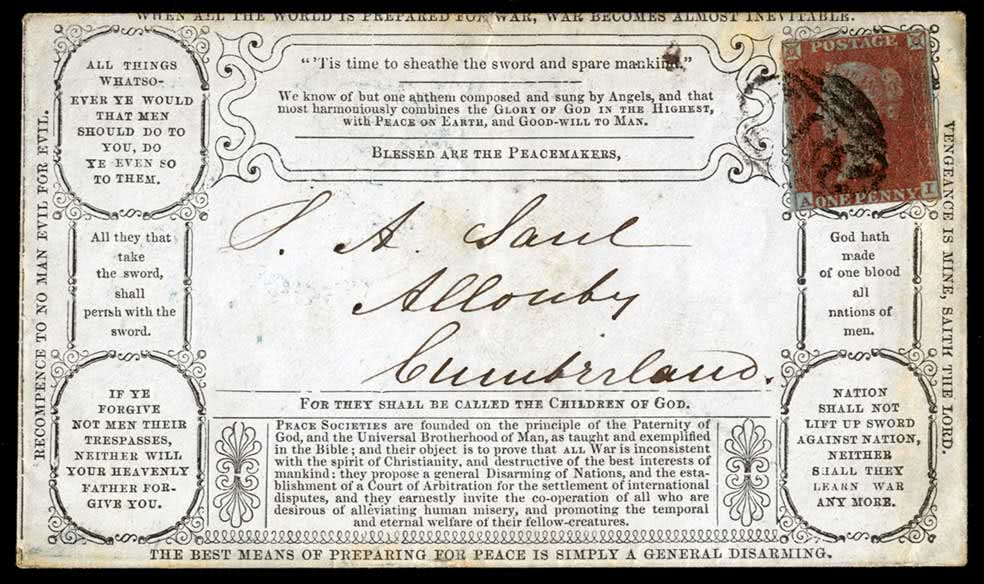 WHEN ALL THE WORLD IS PREPARED FOR WAR, WAR BECOMES ALMOST INEVITABLE.
RECOMPENCE TO NO MAN EVIL FOR EVIL.
ALL THINGS
WHATSO-
EVER YE WOULD
THAT MEN
SHOULD DO TO
YOU, DO
YE EVEN SO
TO THEM.
All they that
take
the sword,
shall
perish with the
sword.
IF YE
FORGIVE
NOT MEN THEIR
TRESPASSES,
NEITHER WILL
YOUR HEAVENLY
FATHER FOR-
GIVE YOU.
"'Tis time to sheathe the sword and spare mankind."
We know of but one anthem composed and sung by Angels, and that
most harmoniously combines the GLORY OF GOD IN THE HIGHEST,
with PEACE ON EARTH, and GOOD-WILL TO MAN.
BLESSED ARE THE PEACEMAKERS,
S. A. Saul
Allonby
Cumberland.
FOR THEY SHALL BE CALLED THE CHILDREN OF GOD.
PEACE SOCIETIES are founded on the principle of the Paternity of
God, and the Universal Brotherhood of Man, as taught and exemplified
in the Bible; and their object is to prove that ALL War is inconsistent
with the spirit of Christianity, and destructive of the best interests of
mankind: they propose a general Disarming of Nations, and the esta-
blishment of a Court of Arbitration for the settlement of international
disputes, and they earnestly invite the co-operation of all who are
desirous of alleviating human misery, and promoting the temporal
and eternal welfare of their fellow-creatures.
POSTAGE
A ONE PENNY I
God hath
made
of one blood
all
nations of
men.
NATION
SHALL NOT
LIFT UP SWORD
AGAINST NATION,
NEITHER
SHALL THEY
LEARN WAR
ANY MORE.
VENGEANCE IS MINE, SAITH THE LORD.
THE BEST MEANS OF PREPARING FOR PEACE IS SIMPLY A GENERAL DISARMING.